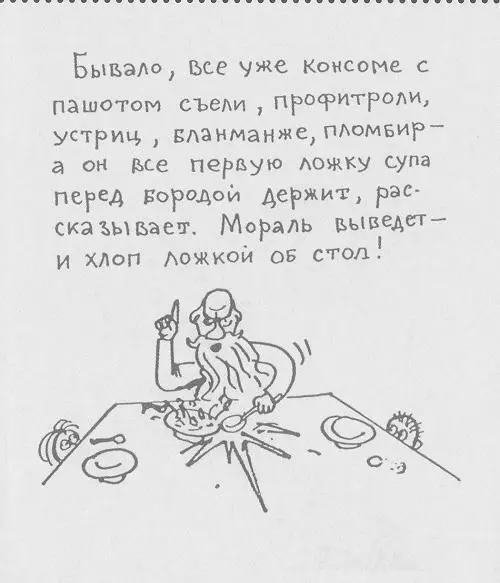 Бывало, все уже консоме с
пашотом съели, профитроли,
устриц, бланманже, пломбир –
а он все первую ложку супа
перед бородой держит, рас-
сказывает. Мораль выведет –
и хлоп ложкой об стол!